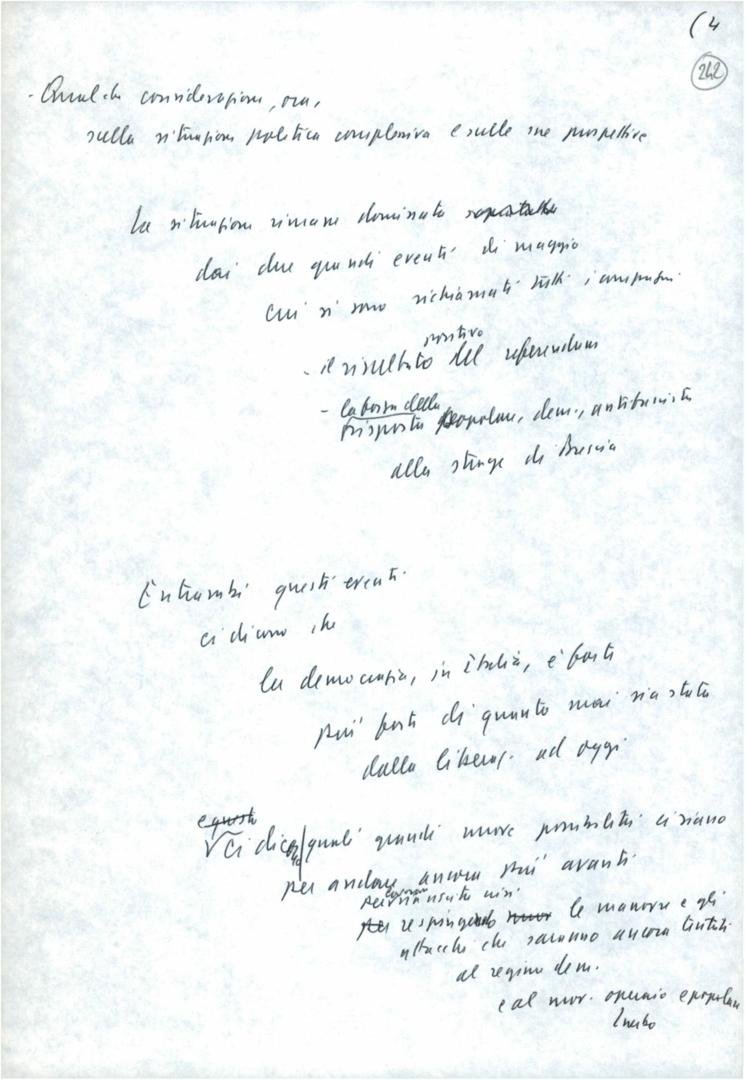 (4
242
- Qualche considerazione, ora,
sulla situazione politica complessiva e sulle sue prospettive
La situazione rimane dominata
dai due grandi eventi di maggio
cui si sono richiamati tutti i compagni
positivo
- il risultato del referendum
- la forza della
risposta popolare, dem., antifascista
alla strage di Brescia
Entrambi questi eventi
ci dicono che
la democrazia, in Italia, è forte
più forte di quanto mai sia stata
dalla liberaz. ad oggi
e questi
ci dicono quali grandi nuove possibilità ci siano
per andare ancora più avanti
per respingendo le manovre e gli
attacchi che saranno ancora tentati
al regime dem.
e al mov. operaio e popolare